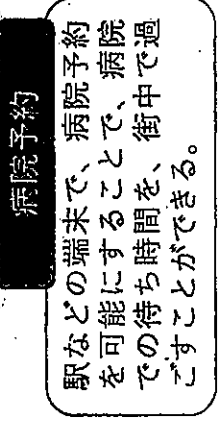 病院予約
駅などの端末で、病院予約
を可能にすることで、病院
での待ち時間を、街中で過
ごすことができる。